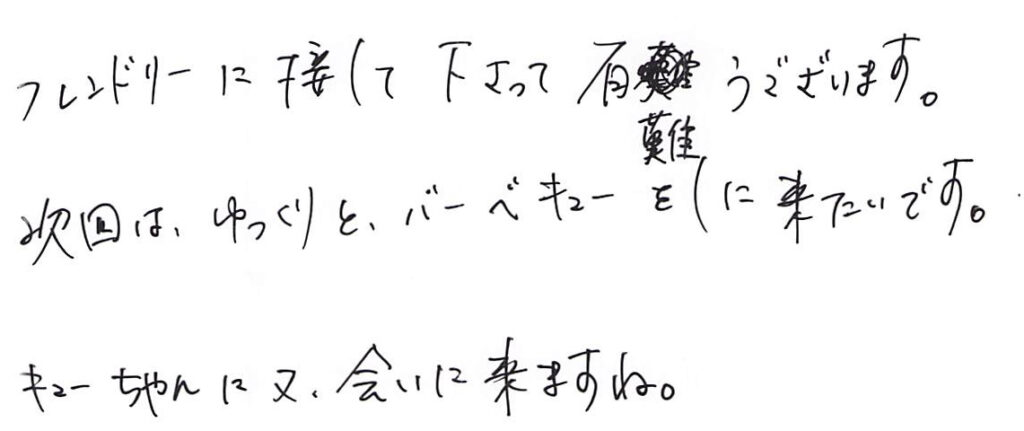 フレンドリーに接して下さって有難うございます。
次回は、ゆっくりと、バーベキューをしに来たいです。
キューちゃんに又、会いに来ますね。